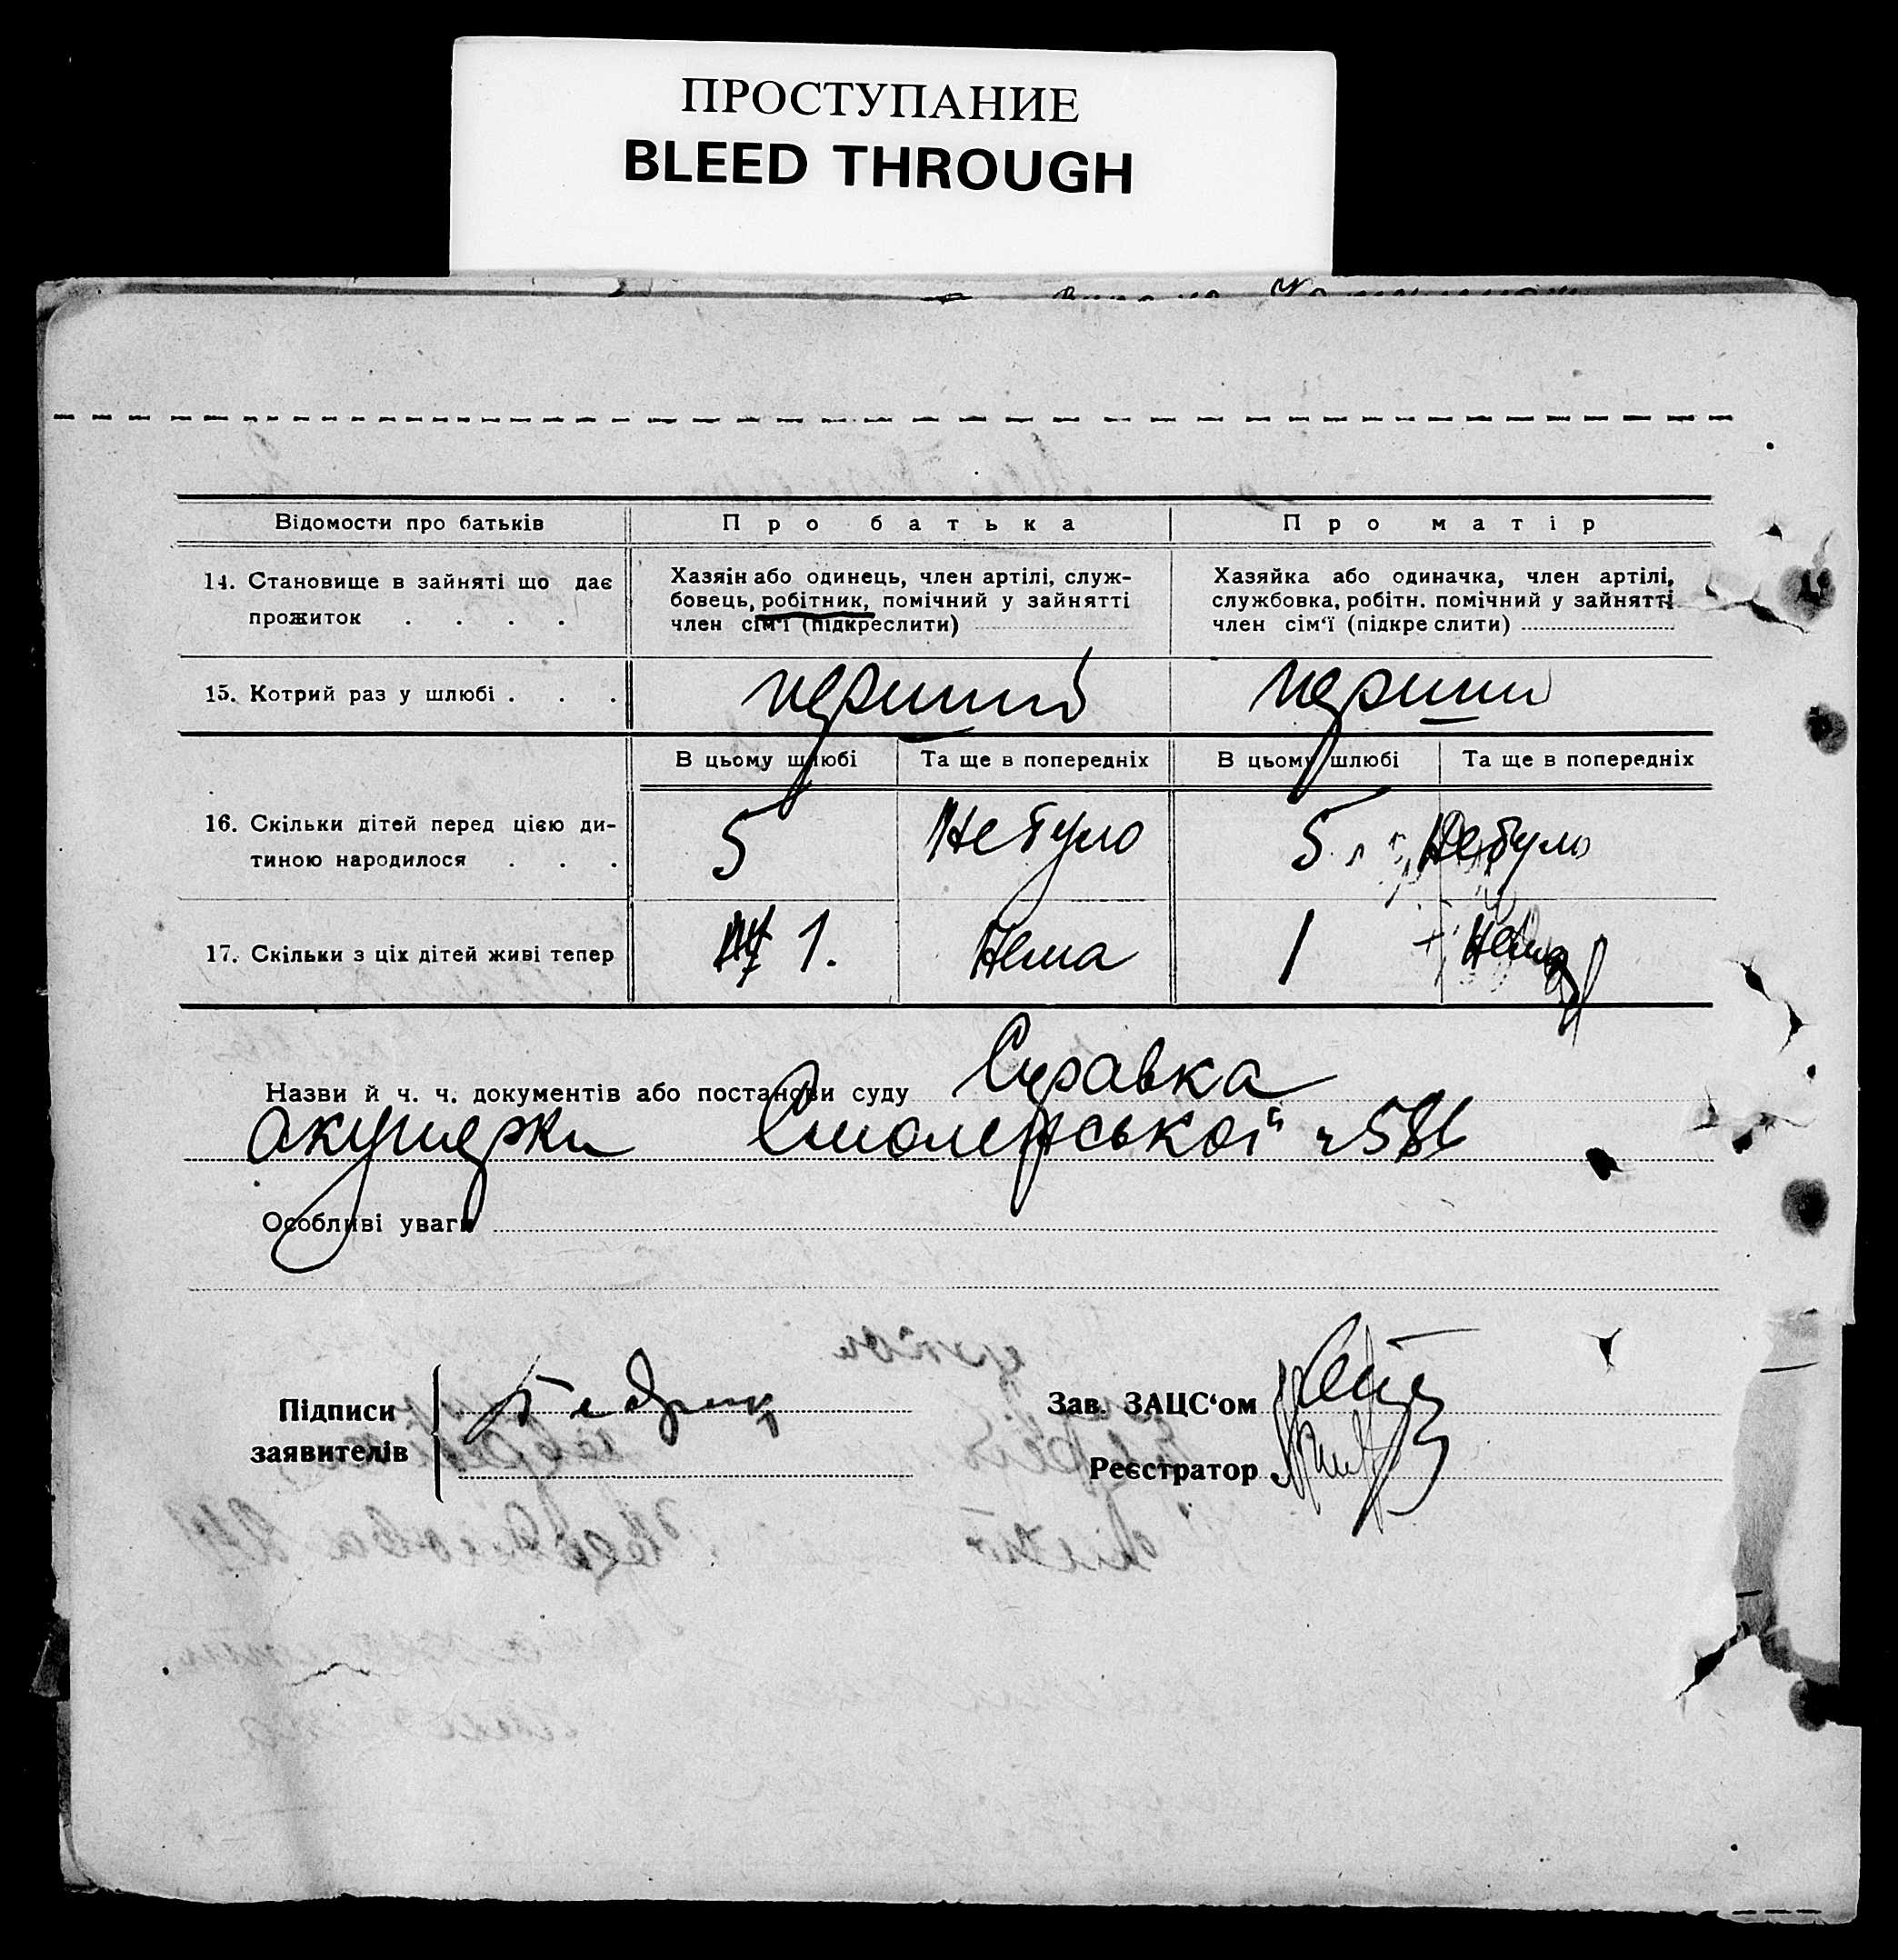 ПРОСТУПАНИЕ
BLEED THROUGH
Відомости про батьків
Про батька
Про матір
14. Становище в зайняті що дає
прожиток . . . .
Хазяїн або одинець, член артілі, служ-
бовець, робітник, помічний у зайнятті
член сім‘ї (підкреслити)
Хазяйка або одиначка, член артілі,
службовка, робітн. помічний у зайнятті
член сім‘ї (підкреслити)
15. Котрий раз у шлюбі . . .
перший
перший
В цьому шлюбі
Та ще в попередніх
В цьому шлюбі
Та ще в попередніх
16. Скільки дітей перед цією ди-
тиною народилося . . .
5
Не було
5
Не було
17. Скільки з ціх дітей живі тепер
1.
Нема
1
Нема
Назви й ч. ч. документів або постанови суду Справка
акушерки Смоленської ч 586
Особливі уваги
Підписи
заявителів
Зав. ЗАЦС‘ом
Реєстратор